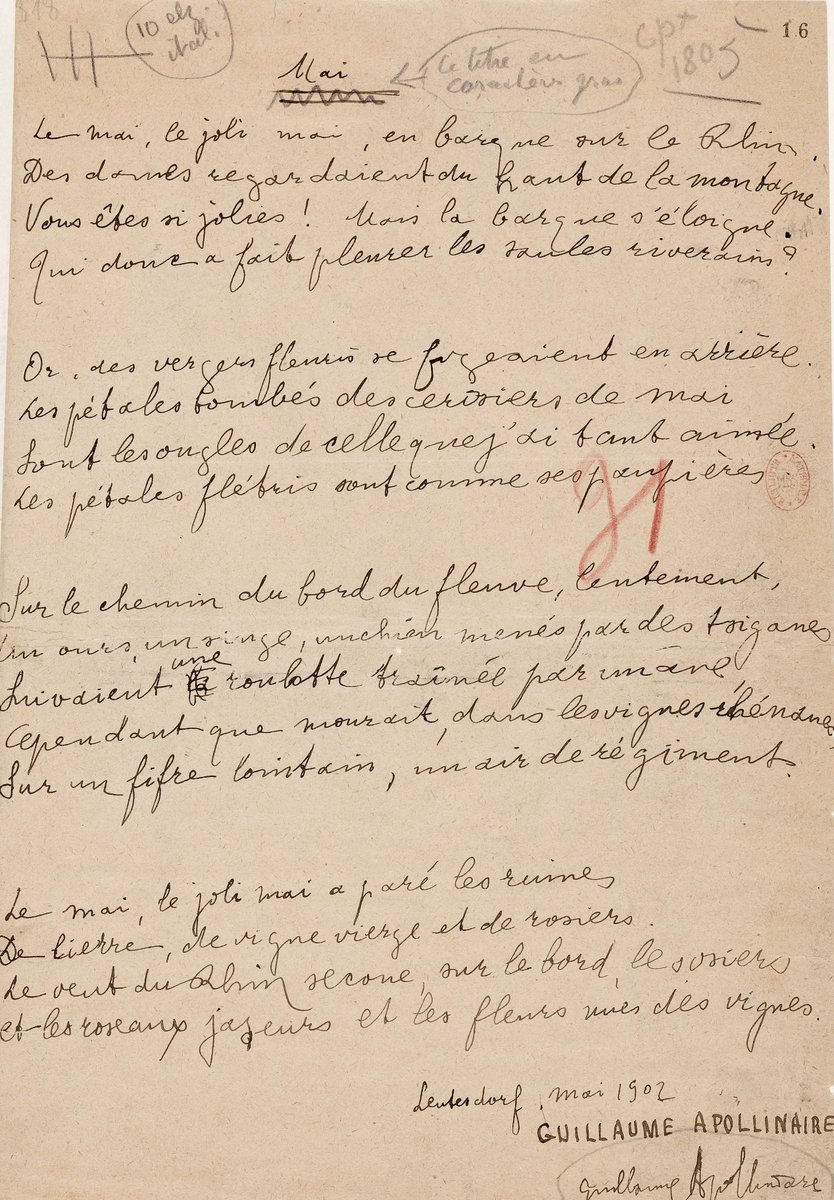 318
10 elz
ital.
cpt
1805
16
Mai
Le titre en
caractères gras
Le mai, le joli mai, en barque sur le Rhin.
Des dames regardaient du haut de la montagne.
Vous êtes si jolies! Mais la barque s'éloigne.
Qui donc a fait pleurer les saules riverains?
Or, des vergers fleuris se figeaient en arrière.
Les pétales tombés des cerisiers de mai
Sont les ongles de celle que j'ai tant aimée.
Les pétales flétris sont comme ses paupières
91
Sur le chemin du bord du fleuve, lentement,
Un ours, un singe, un chien menés par des tziganes
Suivaient une roulotte traînée par un âne,
Cependant que mourait, dans les vignes rhénanes
Sur un fifre lointain, un air de régiment.
Le mai, le joli mai a paré les ruines
De lierre, de vigne vierge et de rosiers.
Le vent du Rhin secoue, sur le bord, les osiers
et les roseaux jaseurs et les fleurs nues des vignes.
Leutesdorf, mai 1902
GUILLAUME APOLLINAIRE
Guillaume Apollinaire